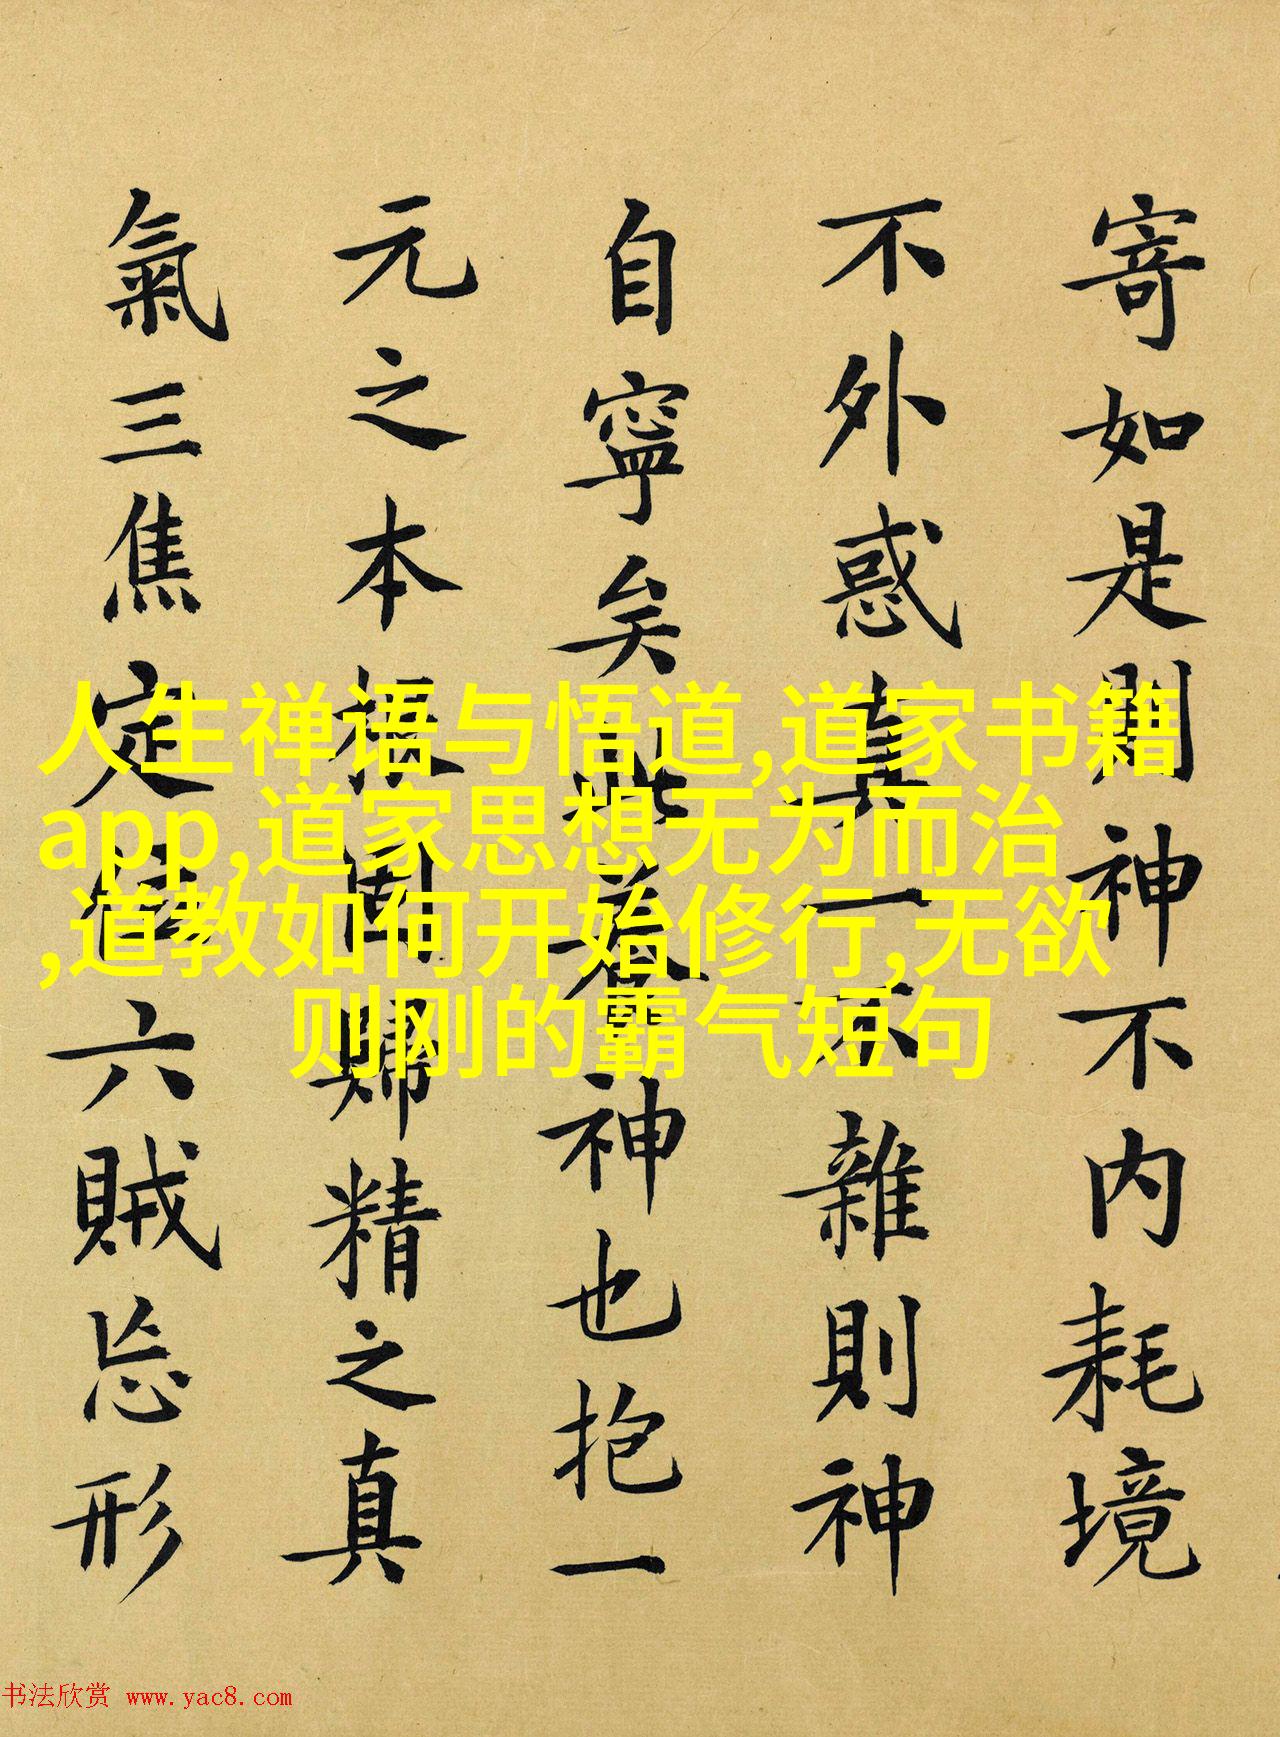 寄如是則神不内耗境
不外惑真一不雜則神
自寧矣此養神也抱一
元之本根固歸精之真
氣三焦定位六賊忘形
人生禅语与悟道,道家书籍
app,道家思想无为而治
,道教如何开始修行,无欲
则刚的霸气短句
书法欣赏 www.yac8.com